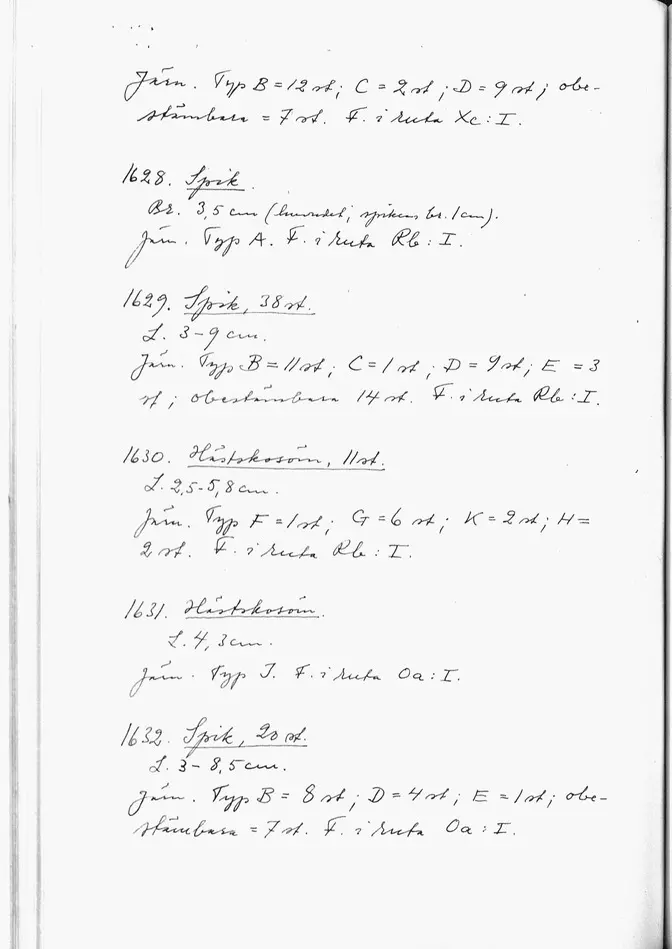 Järn. Typ B = 12 st; C = 2 st; D = 9 st; obe-
stämbara = 7 st. F. i ruta Xc : I.
1628. Spik.
Br. 3,5 cm (huvudet; spikens br. 1 cm).
Järn. Typ A. F. i ruta Rb : I.
1629. Spik, 38 st.
L. 3-9 cm.
Järn. Typ B = 11 st; C = 1 st; D = 9 st; E = 3
st; obestämbara 14 st. F. i ruta Rb : I.
1630. Hästskosöm, 11 st.
L. 2,5-5,8 cm.
Järn. Typ F = 1 st; G = 6 st; K = 2 st; H =
2 st. F. i ruta Rb : I.
1631. Hästskosöm.
L. 4,3 cm.
Järn. Typ J. F. i ruta Oa : I.
1632. Spik, 20 st.
L. 3-8,5 cm.
Järn. Typ B = 8 st; D = 4 st; E = 1 st; obe-
stämbara = 7 st. F. i ruta Oa : I.